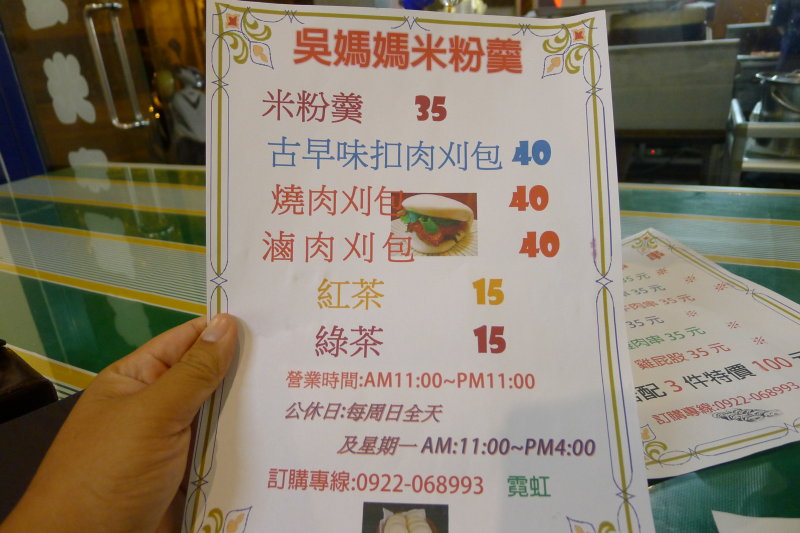 吳媽媽米粉羹
米粉羹 35
古早味扣肉刈包 40
燒肉刈包 40
滷肉刈包 40
紅茶 15
綠茶 15
營業時間:AM11:00~PM11:00
公休日:每周日全天
及星期一 AM:11:00~PM4:00
訂購專線:0922-068993 霓虹
串
35元
肉串 35元
35元
肉串 35元
雞屁股 35元
配 3 件特價 100 元
訂購專線:0922-068993